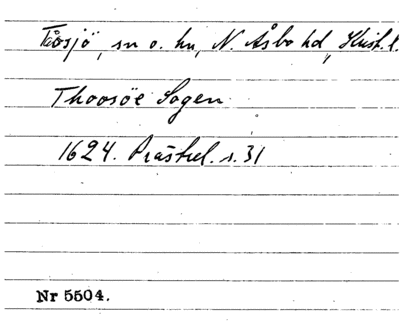 Tåsjö, sn o. hd, N. Åsbo hd, Krist. l.
Thoosöe Sogen
1624. Präsrel. s. 31
Nr 5504.